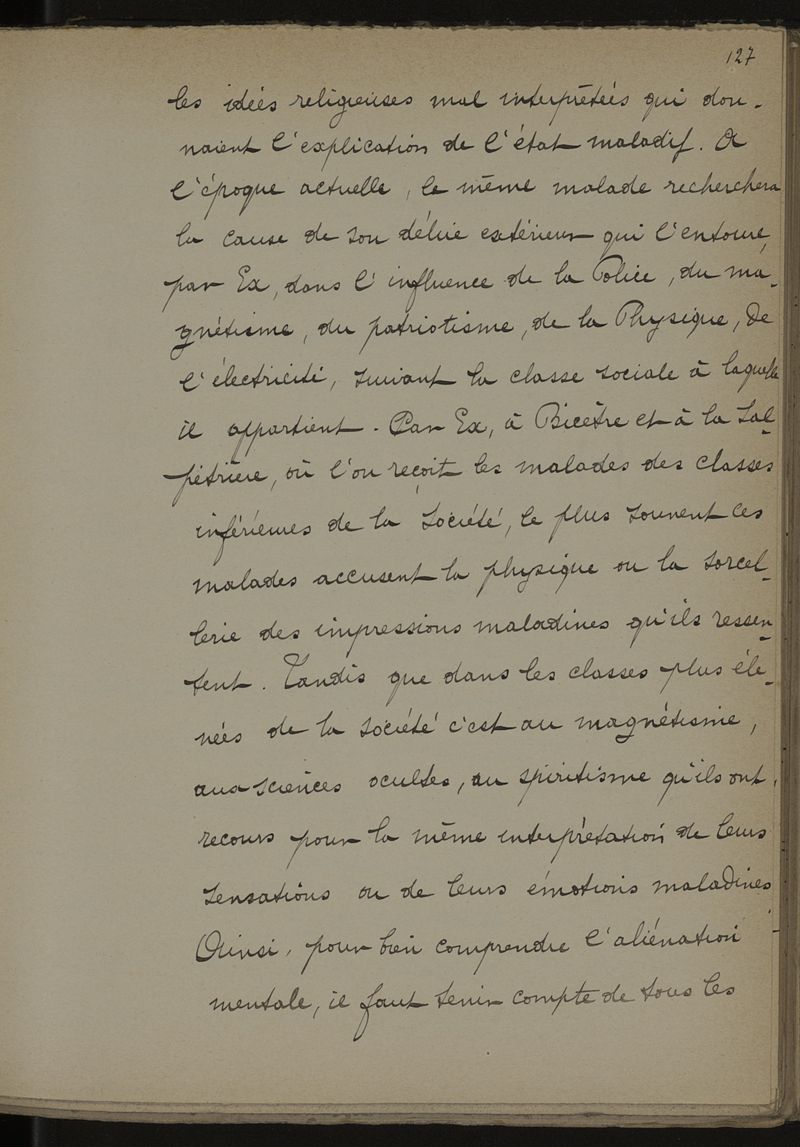 127
les idées religieuses mal interprétées qui don-
naient l'explication de l'état maladif. A
l'époque actuelle, le même malade recherchera
la cause de son délire extérieur qui l'entoure,
par Ex, dans l'influence de la Police, du ma-
gnétisme, du patriotisme, de la Physique, de
l'électricité, suivant la classe sociale à laquelle
il appartient. Par Ex, à Bicêtre et à la Sal-
pétrière, où l'on reçoit les malades des classes
inférieures de la Société, le plus souvent ces
malades accusent la physique ou la sorcel-
lerie des impressions maladives qu'ils ressen-
tent. Tandis que dans les classes plus éle-
vées de la société c'est au magnétisme,
aux sciences ocultes, au spiritisme qu'ils ont
recours pour la même interprétation de leurs
sensations ou de leurs émotions maladives.
Ainsi, pour bien comprendre l'aliénation
mentale, il faut tenir compte de tous les